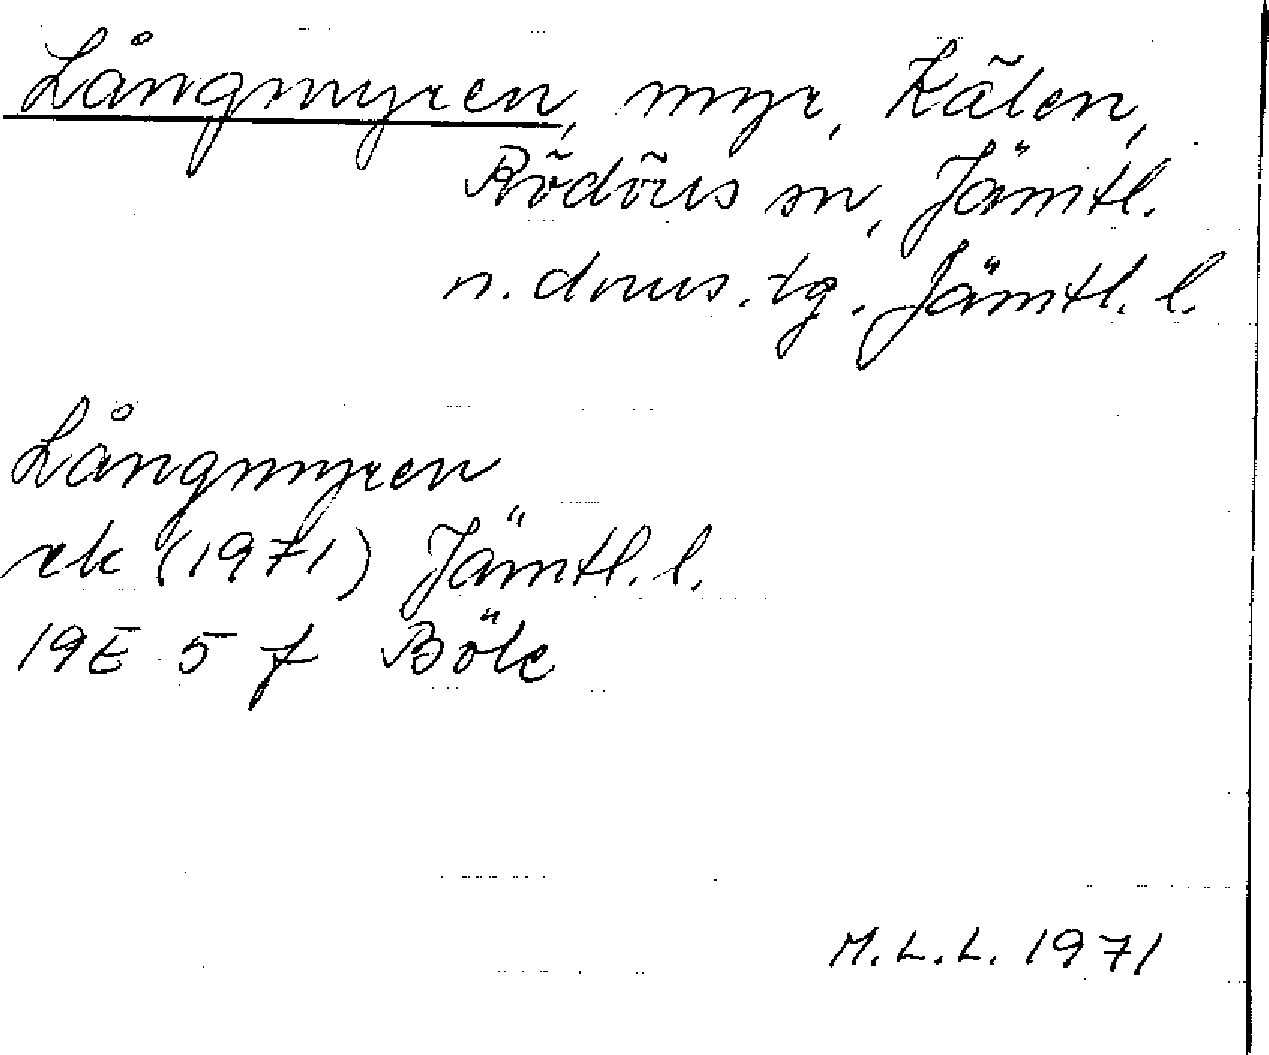 Långmyren, myr, Kälen,
Rödöns sn, Jämtl.
n. dnus. tg. Jämtl. l.
Långmyren
rk (1971) Jämtl. l.
19E 5 f Böle
M.L.L. 1971